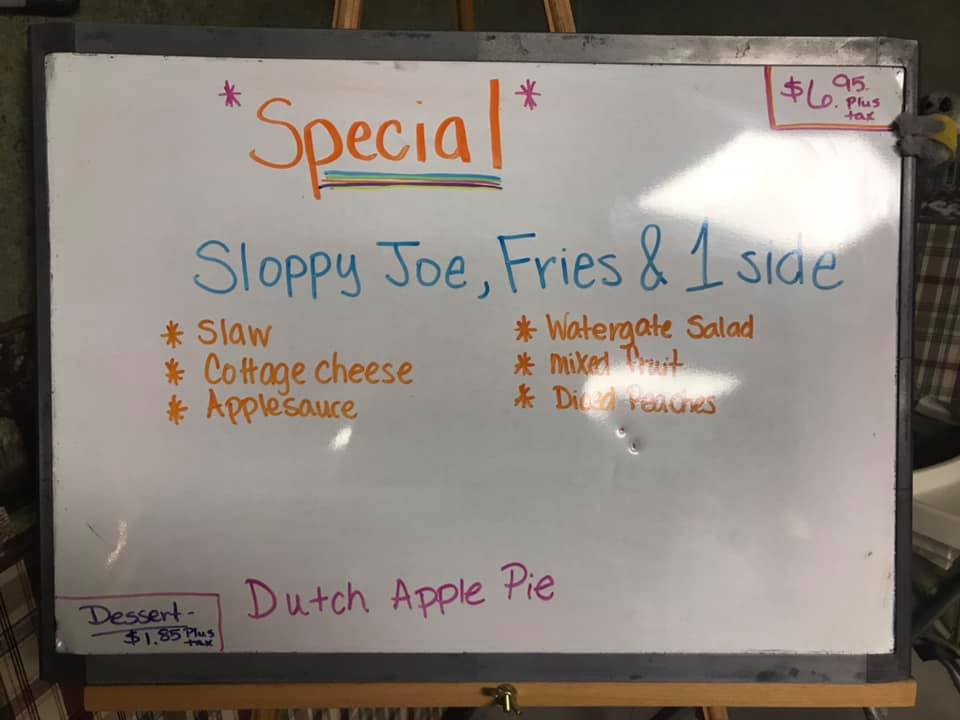 * Special *
$6.95.
Plus
tax
Sloppy Joe, Fries & 1 side
* Slaw
* Cottage cheese
* Applesauce
* Watergate Salad
* mixed Fruit
* Diced Peaches
Dessert-
$1.85 Plus
tax
Dutch Apple Pie